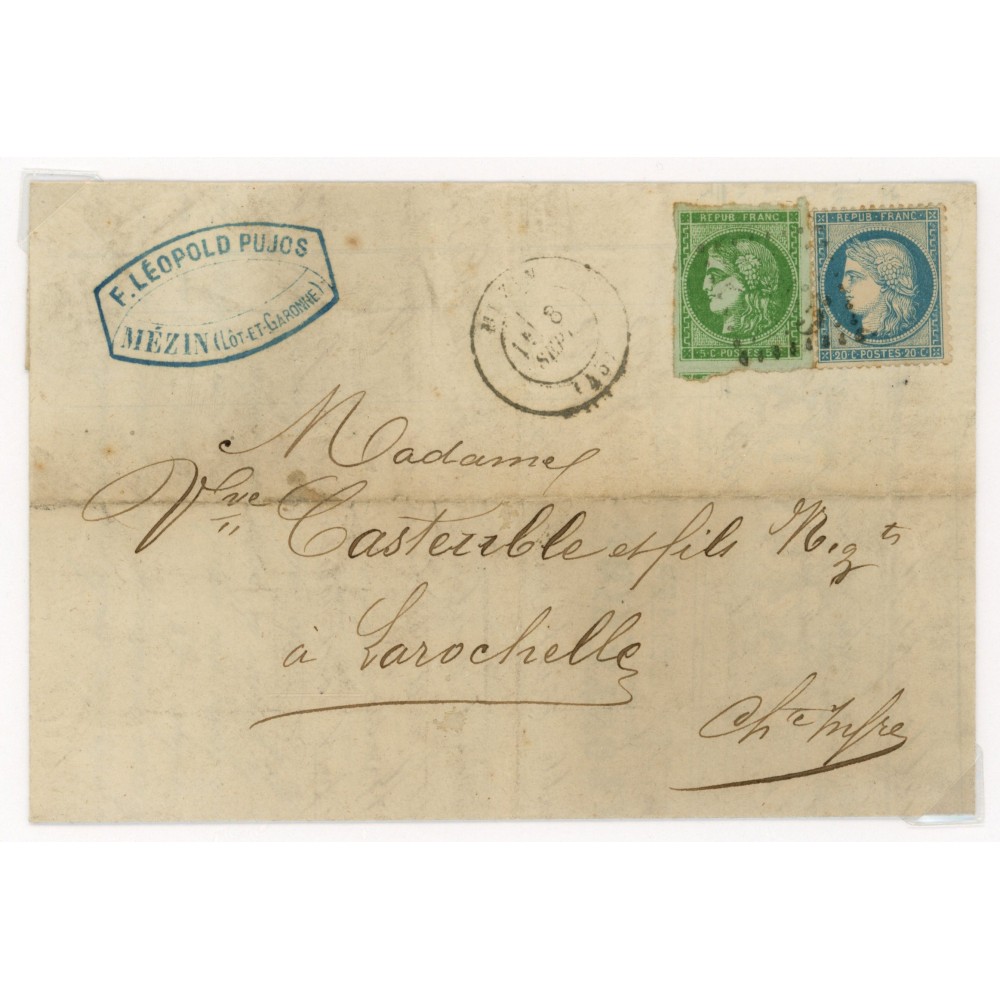 F. LÉOPOLD PUJOS
MÉZIN (LOT-ET-GARONNE)
8
SEPT
(45)
REPUB FRANC
5·C·POSTES
REPUB·FRANC·
20·C·POSTES·20·C·
Madame
Vve Castenble et fils Négts
à Larochelle
Chte Infre